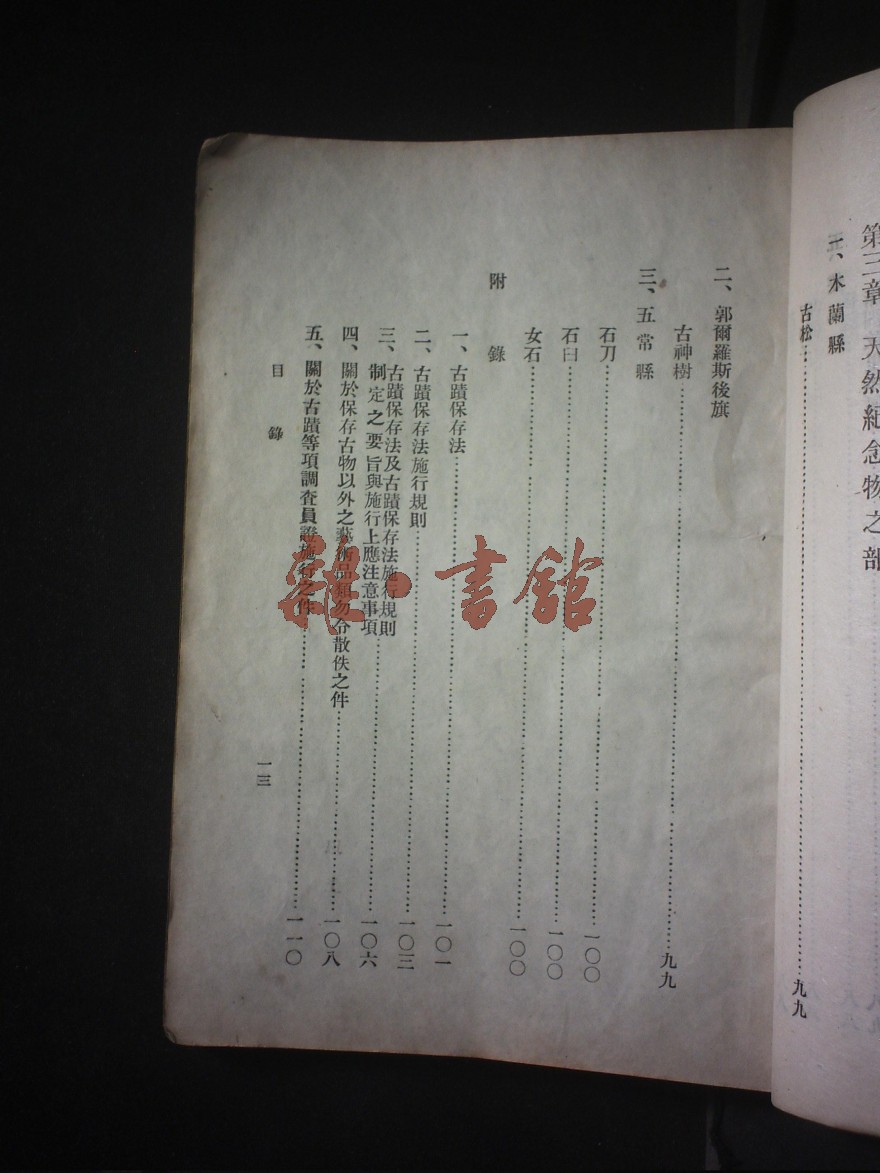 第三章 天然紀念物之部
一、木蘭縣
古松……九九
二、郭爾羅斯後旗
古神樹……九九
三、五常縣
石刀……一〇〇
石臼……一〇〇
女石……一〇〇
附錄
一、古蹟保存法……一〇一
二、古蹟保存法施行規則……一〇三
三、古蹟保存法及古蹟保存法施行規則
制定之要旨與施行上應注意事項……一〇六
四、關於保存古物以外之藝術品類勿令散佚之件……一〇八
五、關於古蹟等項調查員證施行之件……一一〇
目錄
一三
雜·書館